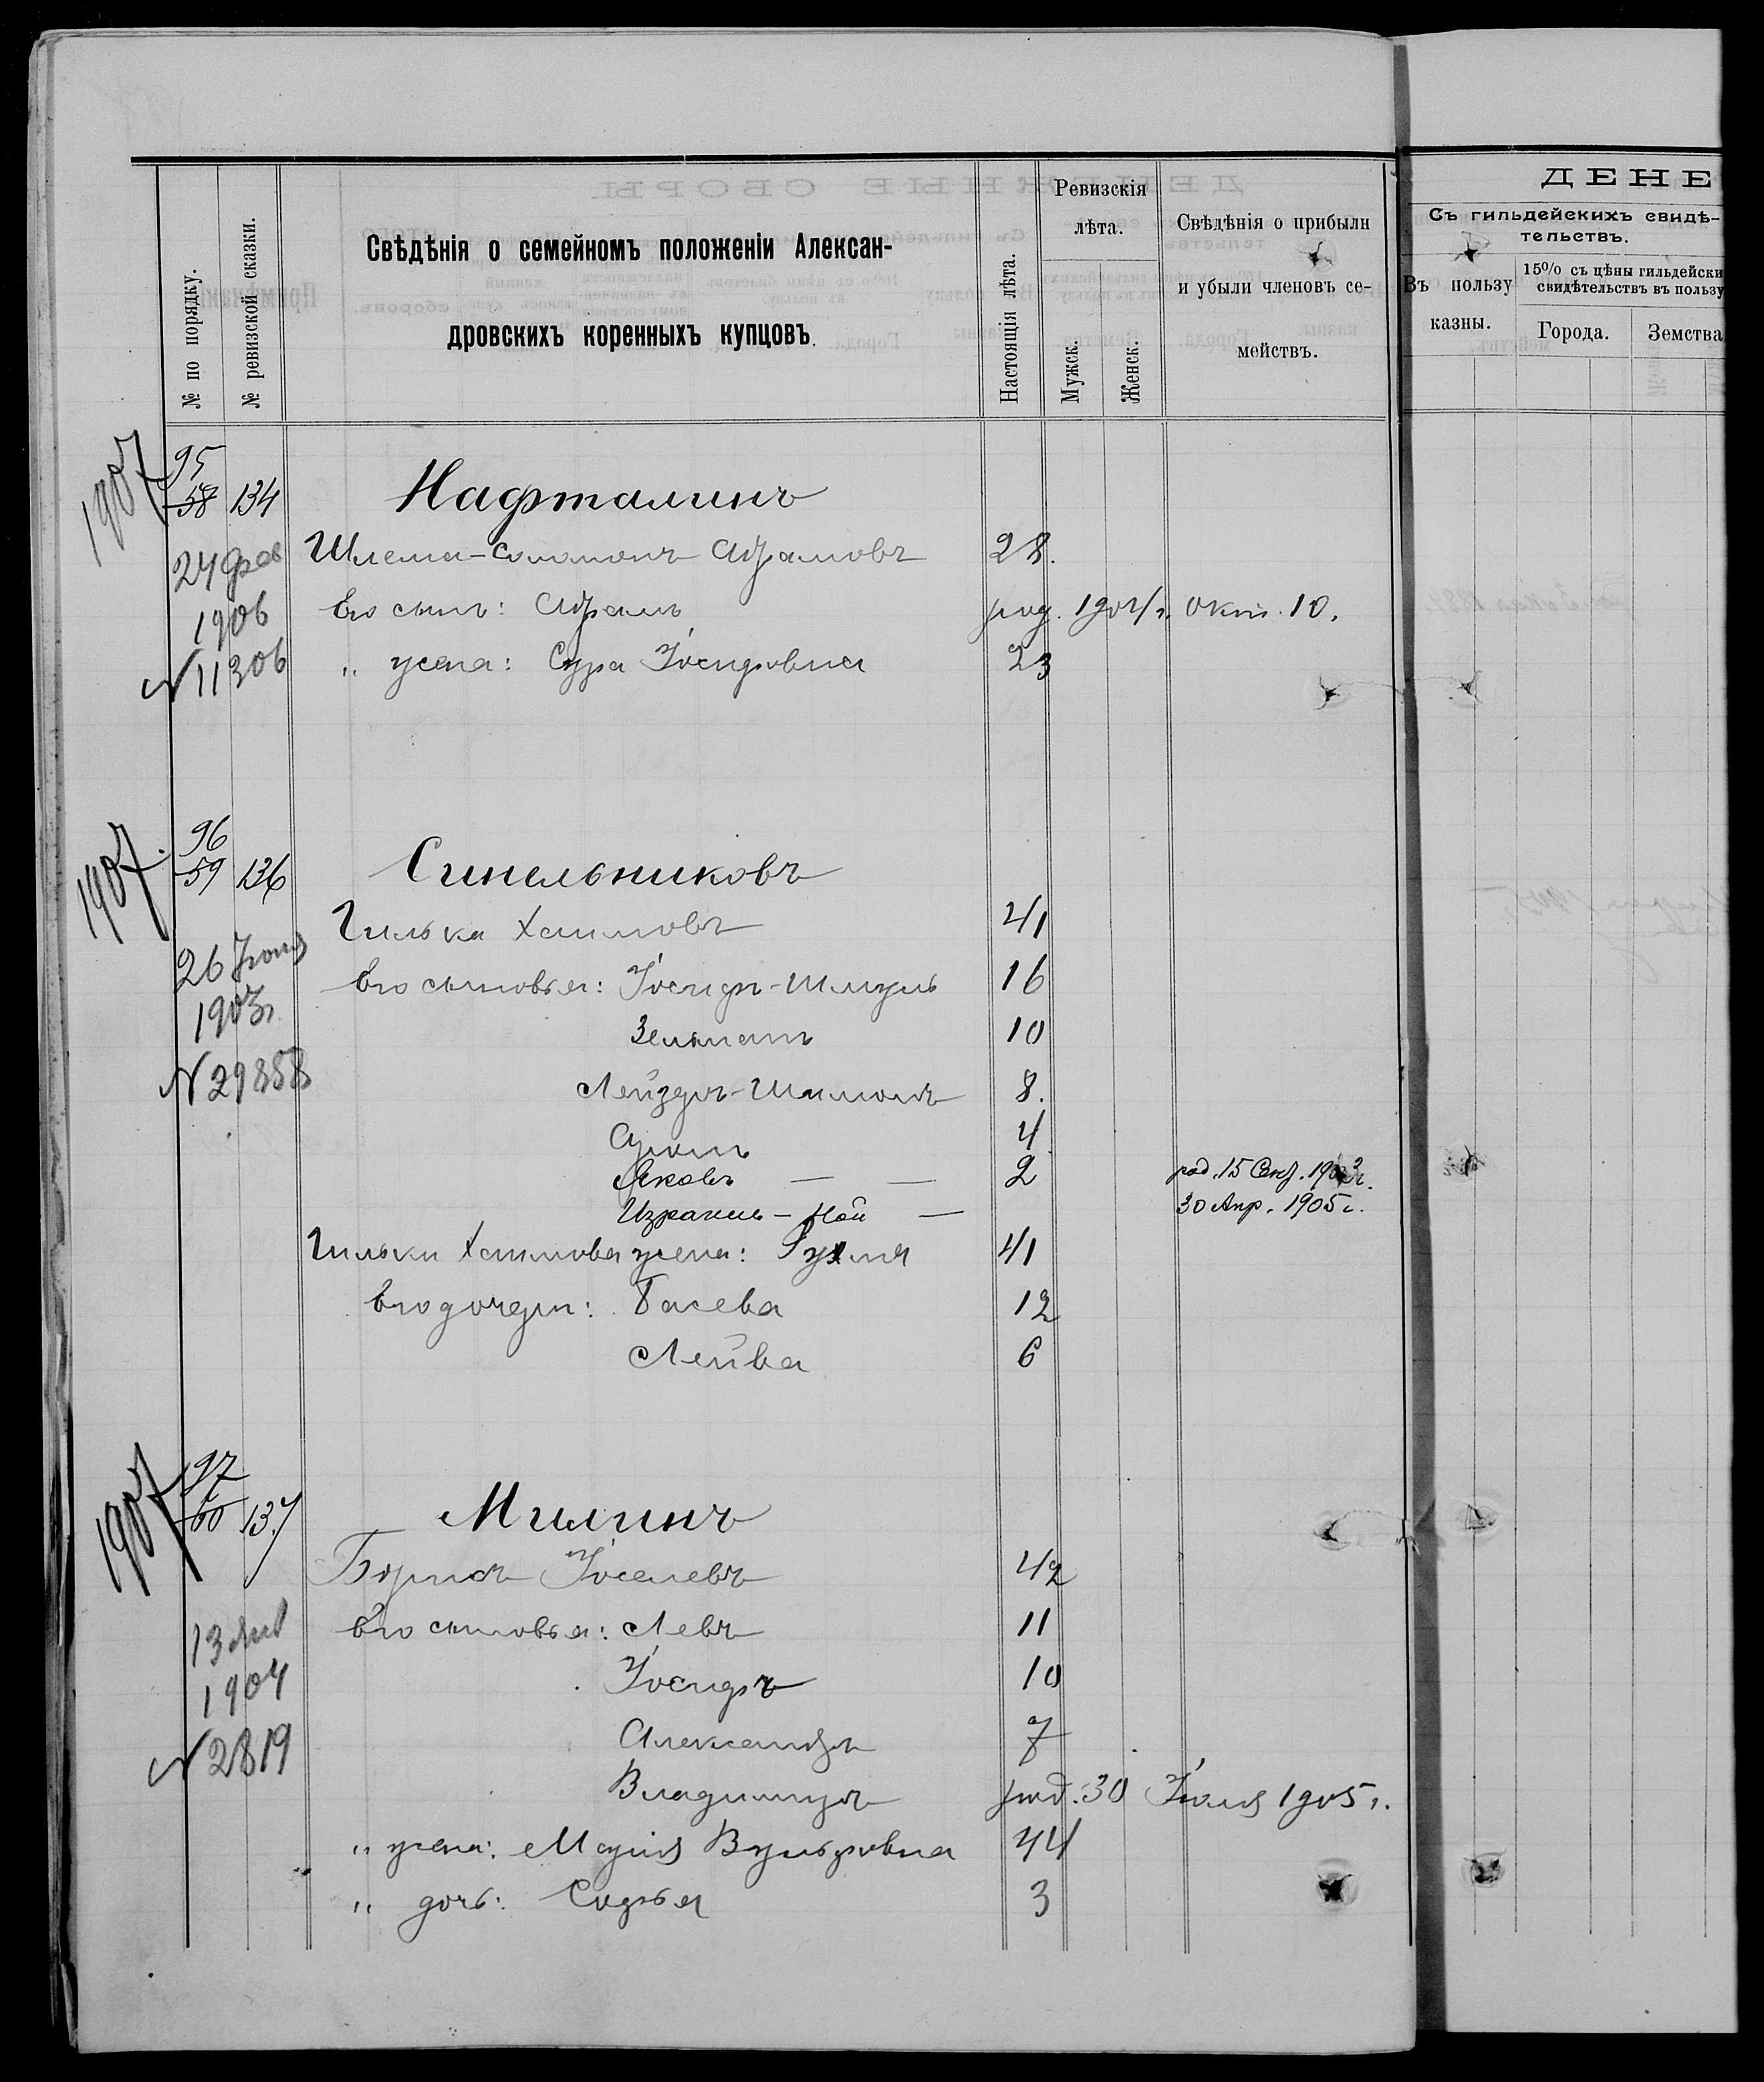 № по порядку.
№ ревизской сказки.
Свѣдѣнія о семейномъ положеніи Алексан-
дровскихъ коренныхъ купцовъ.
Настоящія лѣта.
Ревизскія
лѣта.
Мужск.
Женск.
Свѣдѣнія о прибыли
и убыли членовъ се-
мействъ.
ДЕНЕ
Съ гильдейскихъ свидѣ-
тельствъ.
Въ пользу
казны.
15% съ цѣны гильдейски
свидѣтельствъ въ пользу
Города.
Земства
1907
95
58 134 Нафталинъ
24 фев Шлема-Соломонъ Абрамовъ 28.
1906 Его сынъ: Абрамъ род. 1904 г. Окт. 10.
N 11306 „ жена: Сура Іосифовна 23
1907.
96
59 136 Синельниковъ
Гилька Хаимовъ 41
26 Іюня
1903 г. Его сыновья: Іосифъ-Шмуль 16
Зельманъ 10
N 29858 Лейзеръ-Шимонъ 8.
4
Яковъ — — 2 род. 15 Сент. 1903 г.
Израиль-Ной — 30 Апр. 1905 г.
Гильки Хаимова жена: Рухля 41
Его дочери: Басева 12
Лейва 6
1907
97
60 137 Милинъ
Борисъ Іоселевъ 42
13 Янв Его сыновья: Левъ 11
1904 Іосифъ 10
N 2819 Александръ 7
Владимиръ род. 30 Іюля 1905 г.
„ жена: Марія Вульфовна 44
„ дочь: Софья 3